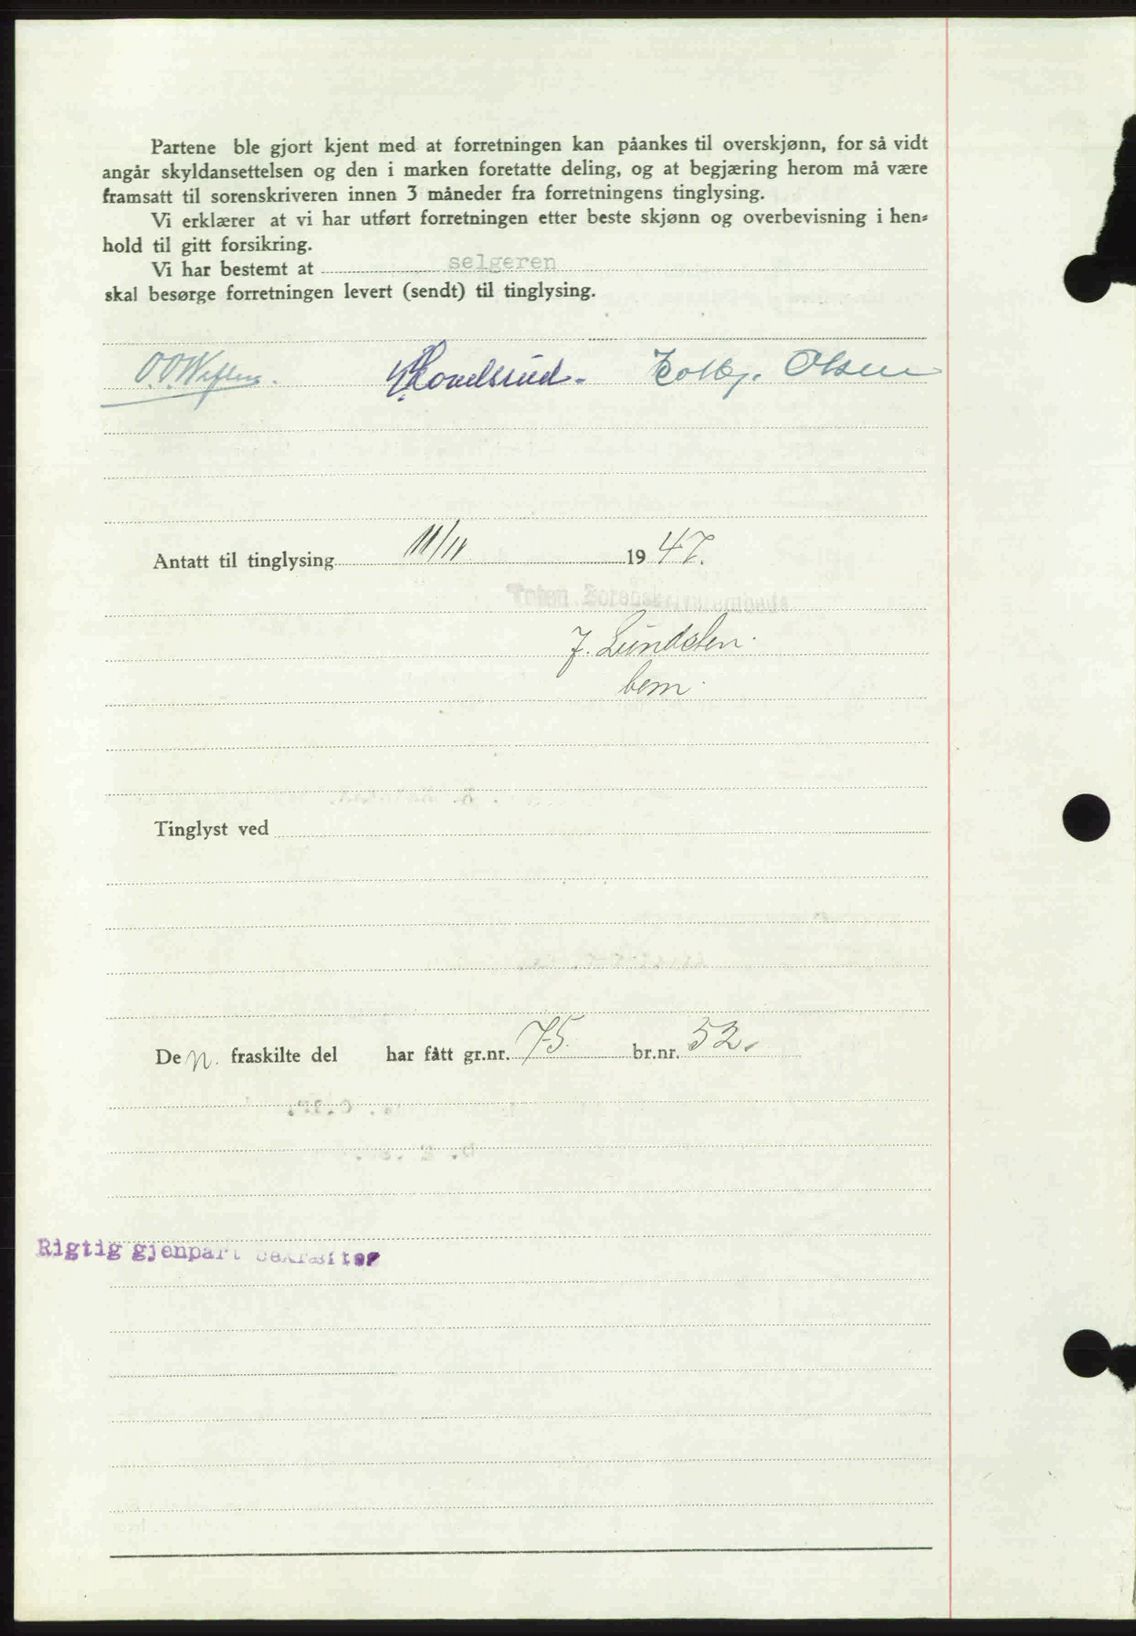 Partene ble gjort kjent med at forretningen kan påankes til overskjønn, for så vidt
angår skyldansettelsen og den i marken foretatte deling, og at begjæring herom må være
framsatt til sorenskriveren innen 3 måneder fra forretningens tinglysing.
Vi erklærer at vi har utført forretningen etter beste skjønn og overbevisning i hen-
hold til gitt forsikring.
Vi har bestemt at selgeren
skal besørge forretningen levert (sendt) til tinglysing.
Olsen
Antatt til tinglysing 11/11 1947.
Toten Sorenskriverembede
J. Lundsten.
bem.
Tinglyst ved
Den. fraskilte del har fått gr.nr. 75. br.nr. 52.
Rigtig gjenpart bekræfter